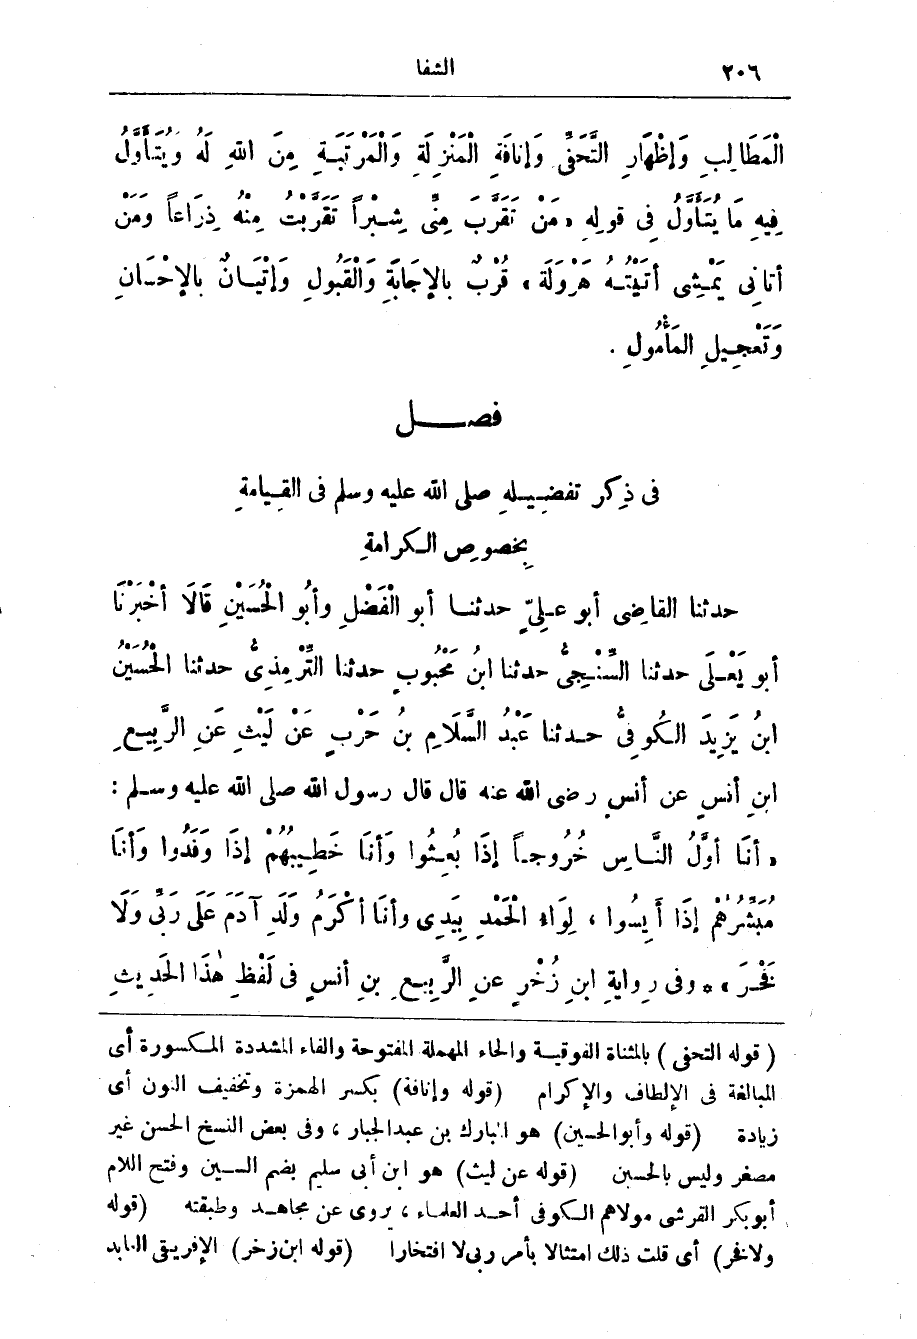 ٢٠٦ الشفا
الْمَطَالِبِ وَإِظْهَارِ التَّحَفِّي وَإنافَةِ الْمَنْزِلَةِ وَالْمَرْتَبَةِ مِنَ اللهِ لَهُ وَيُتَأَوَّلُ
فِيهِ مَا يُتَأَوَّلُ فى قولِهِ « مَنْ تَقَرَّبَ مِنِّى شِبْراً تَقَرَّبْتُ مِنْهُ ذِرَاعاً وَمَنْ
أتانى يَمْشِى أتَيْتُهُ هَرْوَلَةً » قُرْبٌ بالإجَابَةِ وَالْقَبُولِ وَإتْيَانٌ بالإحْسَانِ
وَتَعْجِيلِ المَأْمُولِ .
فصل
فى ذِكر تفضيلِهِ صلى الله عليه وسلم فى القِيامةِ
بِخصوصِ الكرامةِ
حدثنا القاضِى أبو علِىٍّ حدثنا أبو الْفَضْلِ وأبُو الْحُسَيْنِ قَالَا أخْبَرَنَا
أبو يَعْلَى حدثنا السِّنْجِىُّ حدثنا ابنُ مَحْبُوبٍ حدثنا التِّرْمِذِىُّ حدثنا الْحُسَيْنُ
ابنُ يَزِيدَ الكُوفِىُّ حدثنا عَبْدُ السَّلَامِ بنُ حَرْبٍ عَنْ لَيْثٍ عَنِ الرَّبِيعِ
ابنِ أنسٍ عن أنسٍ رضى الله عنه قال قال رسول الله صلى الله عليه وسلم :
« أنَا أوَّلُ النَّاسِ خُرُوجاً إذَا بُعِثُوا وَأنَا خَطِيبُهُمْ إذَا وَفَدُوا وَأنَا
مُبَشِّرُهُمْ إذَا أَيِسُوا ، لِوَاءُ الْحَمْدِ بِيَدِى وأنَا أكْرَمُ وَلَدِ آدَمَ عَلَى رَبِّى وَلَا
فَخْرَ » * وفى رِوايةِ ابنِ زُخْرٍ عنِ الرَّبِيعِ بنِ أنسٍ فى لَفْظِ هٰذَا الحَدِيثِ
( قوله التحفى ) بالمثناة الفوقية والحاء المهملة المفتوحة والفاء المشددة المكسورة أى
المبالغة فى الإلطاف والإكرام (قوله وإنافة) بكسر الهمزة وتخفيف النون أى
زيادة (قوله وأبوالحسين) هو المبارك بن عبدالجبار ، وفى بعض النسخ الحسن غير
مصغر وليس بالحسين (قوله عن ليث) هو ابن أبى سليم بضم السين وفتح اللام
أبوبكر القرشى مولاهم الكوفى أحد العلماء ، يروى عن مجاهد وطبقته (قوله
ولافخر) أى قلت ذلك امتثالا بأمر ربى لا افتخارا (قوله ابن زخر) الإفريقى العابد